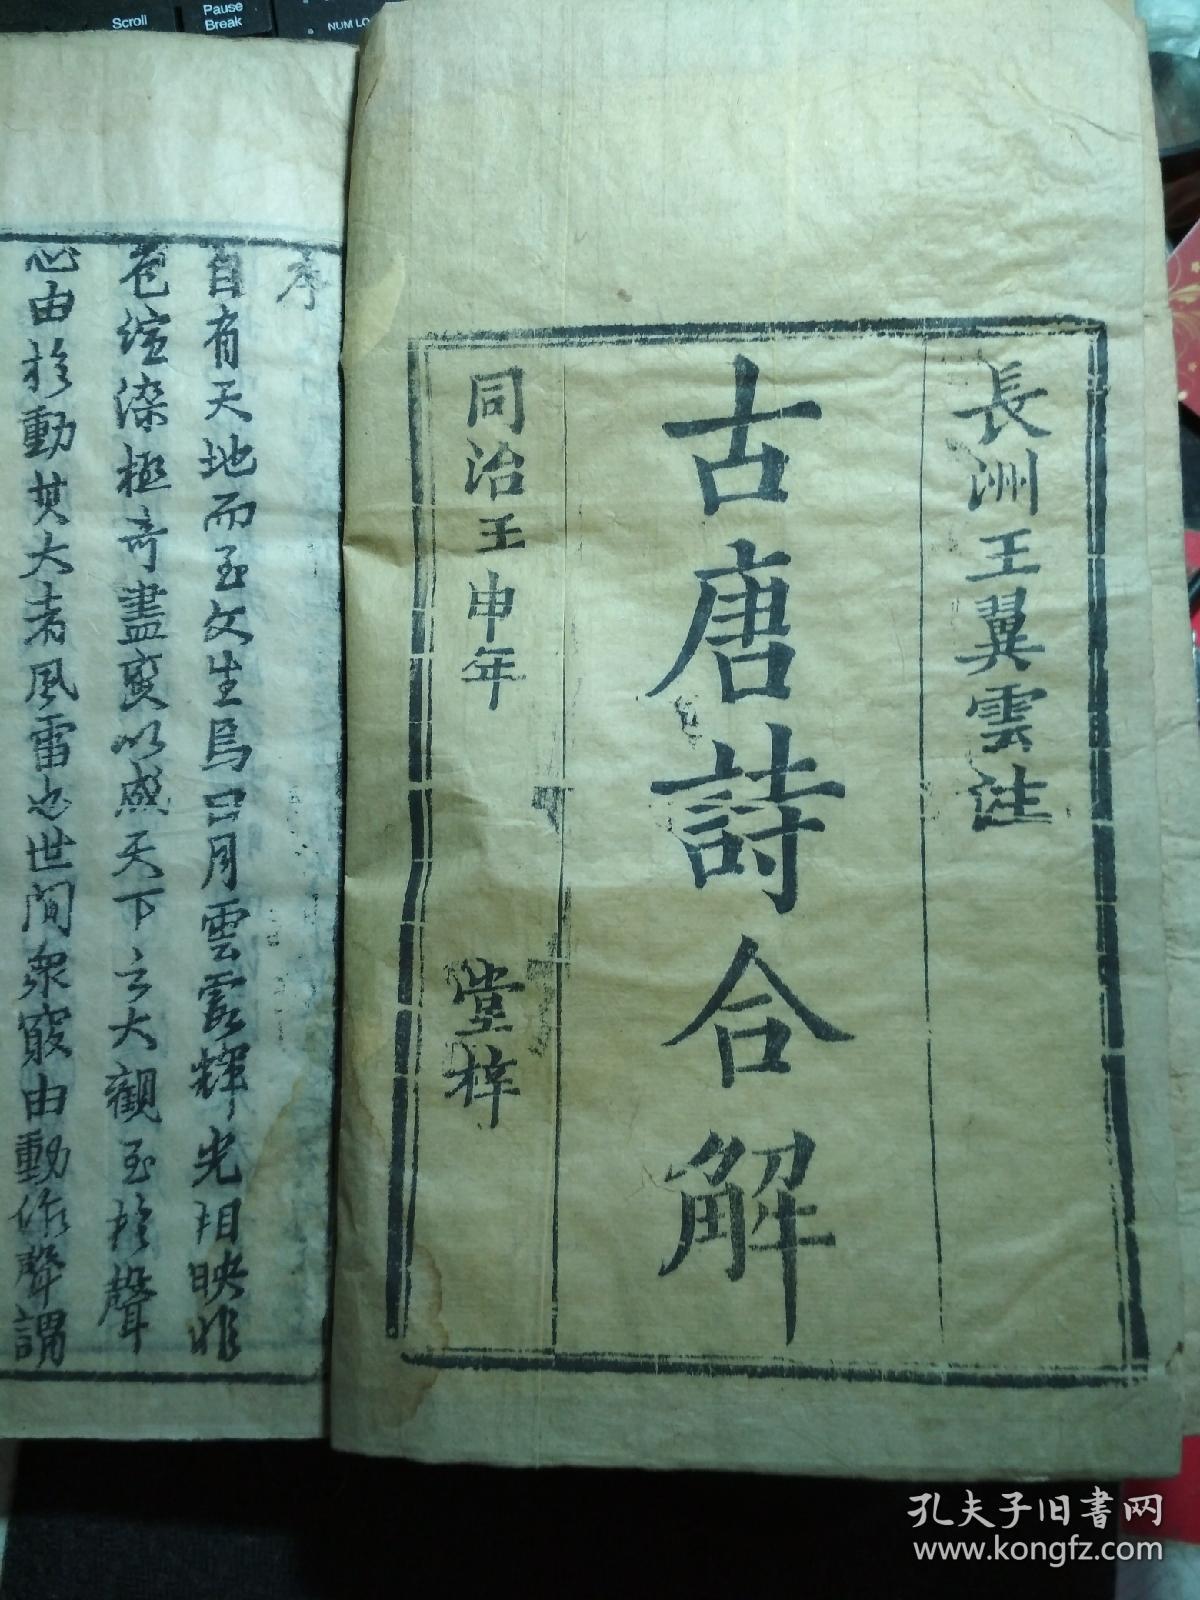 Scroll
Pause
Break
NUM LO
長洲王翼雲註
古唐詩合解
同治王申年
堂梓
序
自有天地而至文生焉日月雲霞輝光相映非
苍絵染極奇盡變以成天下之大觀至於聲
心由於動其大者風雷也世間衆竅由動作聲謂
孔夫子旧书网
www.kongfz.com